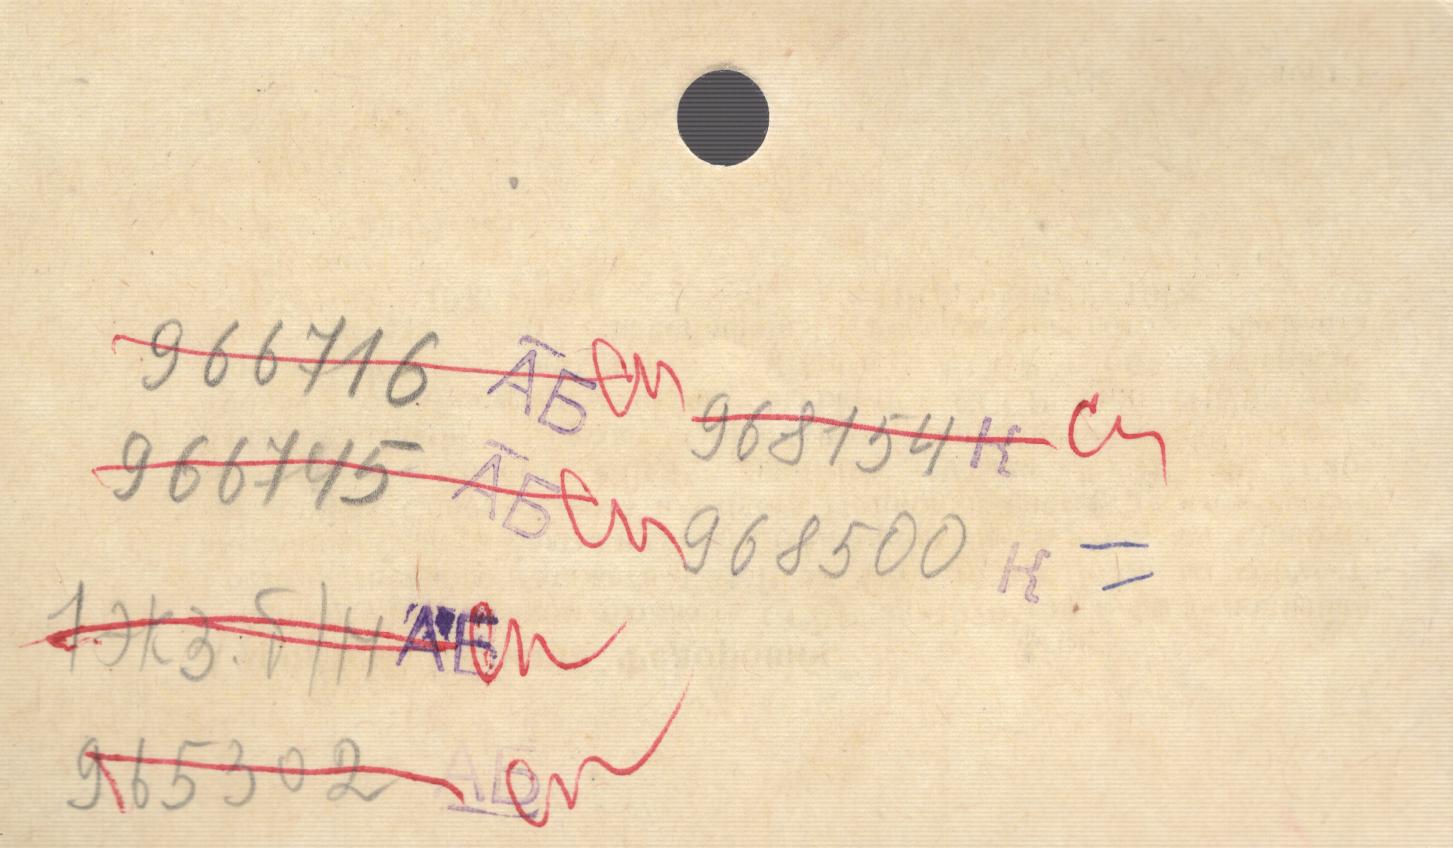 966716 АБ сп
968154 К сп
966745 АБ сп
968500 К I
1 экз. б/н АБ сп
965302 АБ сп